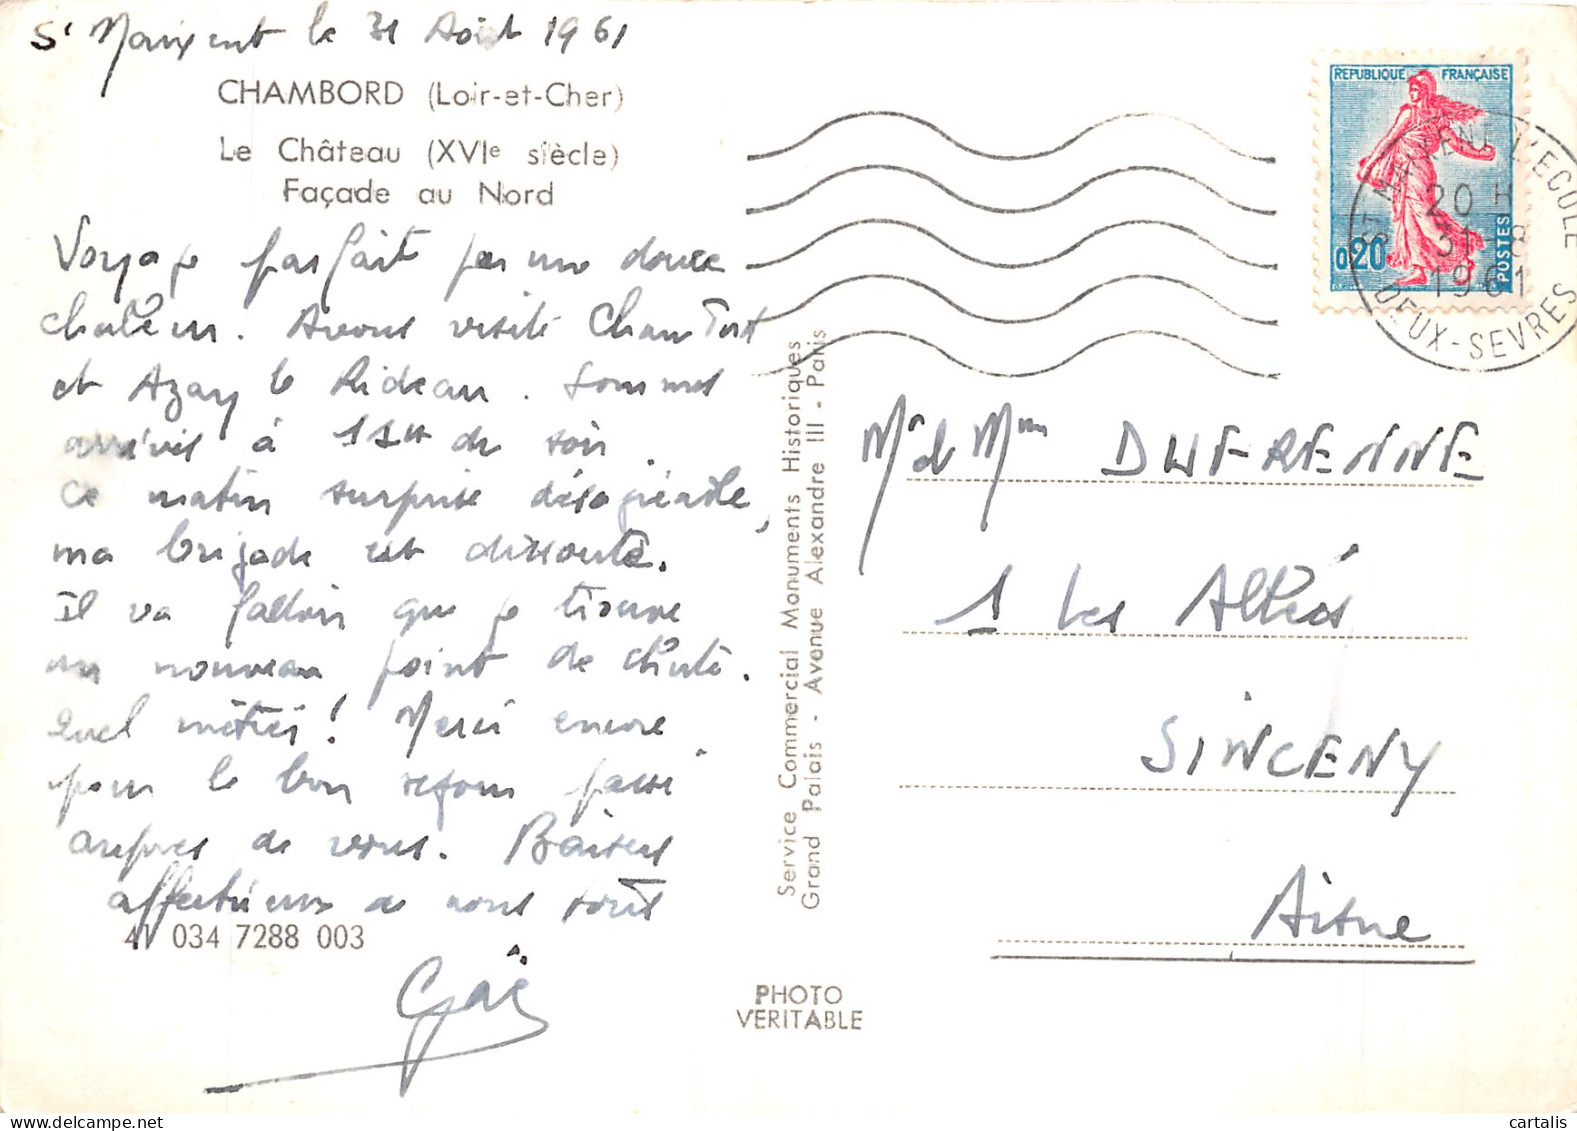 St Maixent le 31 Août 1961
CHAMBORD (Loir-et-Cher)
Le Château (XVIe siècle)
Façade au Nord
Voyage parfait par une douce
chaleur. Avons visité Chambord
et Azay le Rideau. Sommes
arrivés à 11H du soir.
Ce matin surprise désagréable,
ma brigade est dissoute.
Il va falloir que je trouve
un nouveau point de chute.
Quel métier! Merci encore
pour le bon séjour passé
auprès de vous. Baisers
affectueux de nous tous
41 034 7288 003
PHOTO
VERITABLE
Service Commercial Monuments Historiques
Grand Palais - Avenue Alexandre III - Paris
REPUBLIQUE FRANÇAISE
0,20
POSTES
ST MAIXENT L'ECOLE
20 H
31-8
1961
DEUX-SEVRES
Mr et Mme DUFRENNE
1 Les
SINCENY
Aisne
cartalis